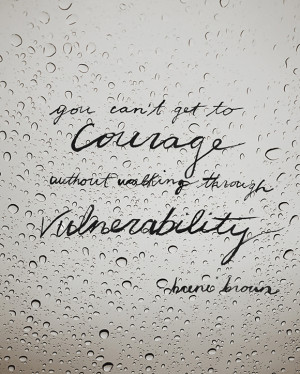 you can't get to
Courage
without walking through
Vulnerability
brene brown